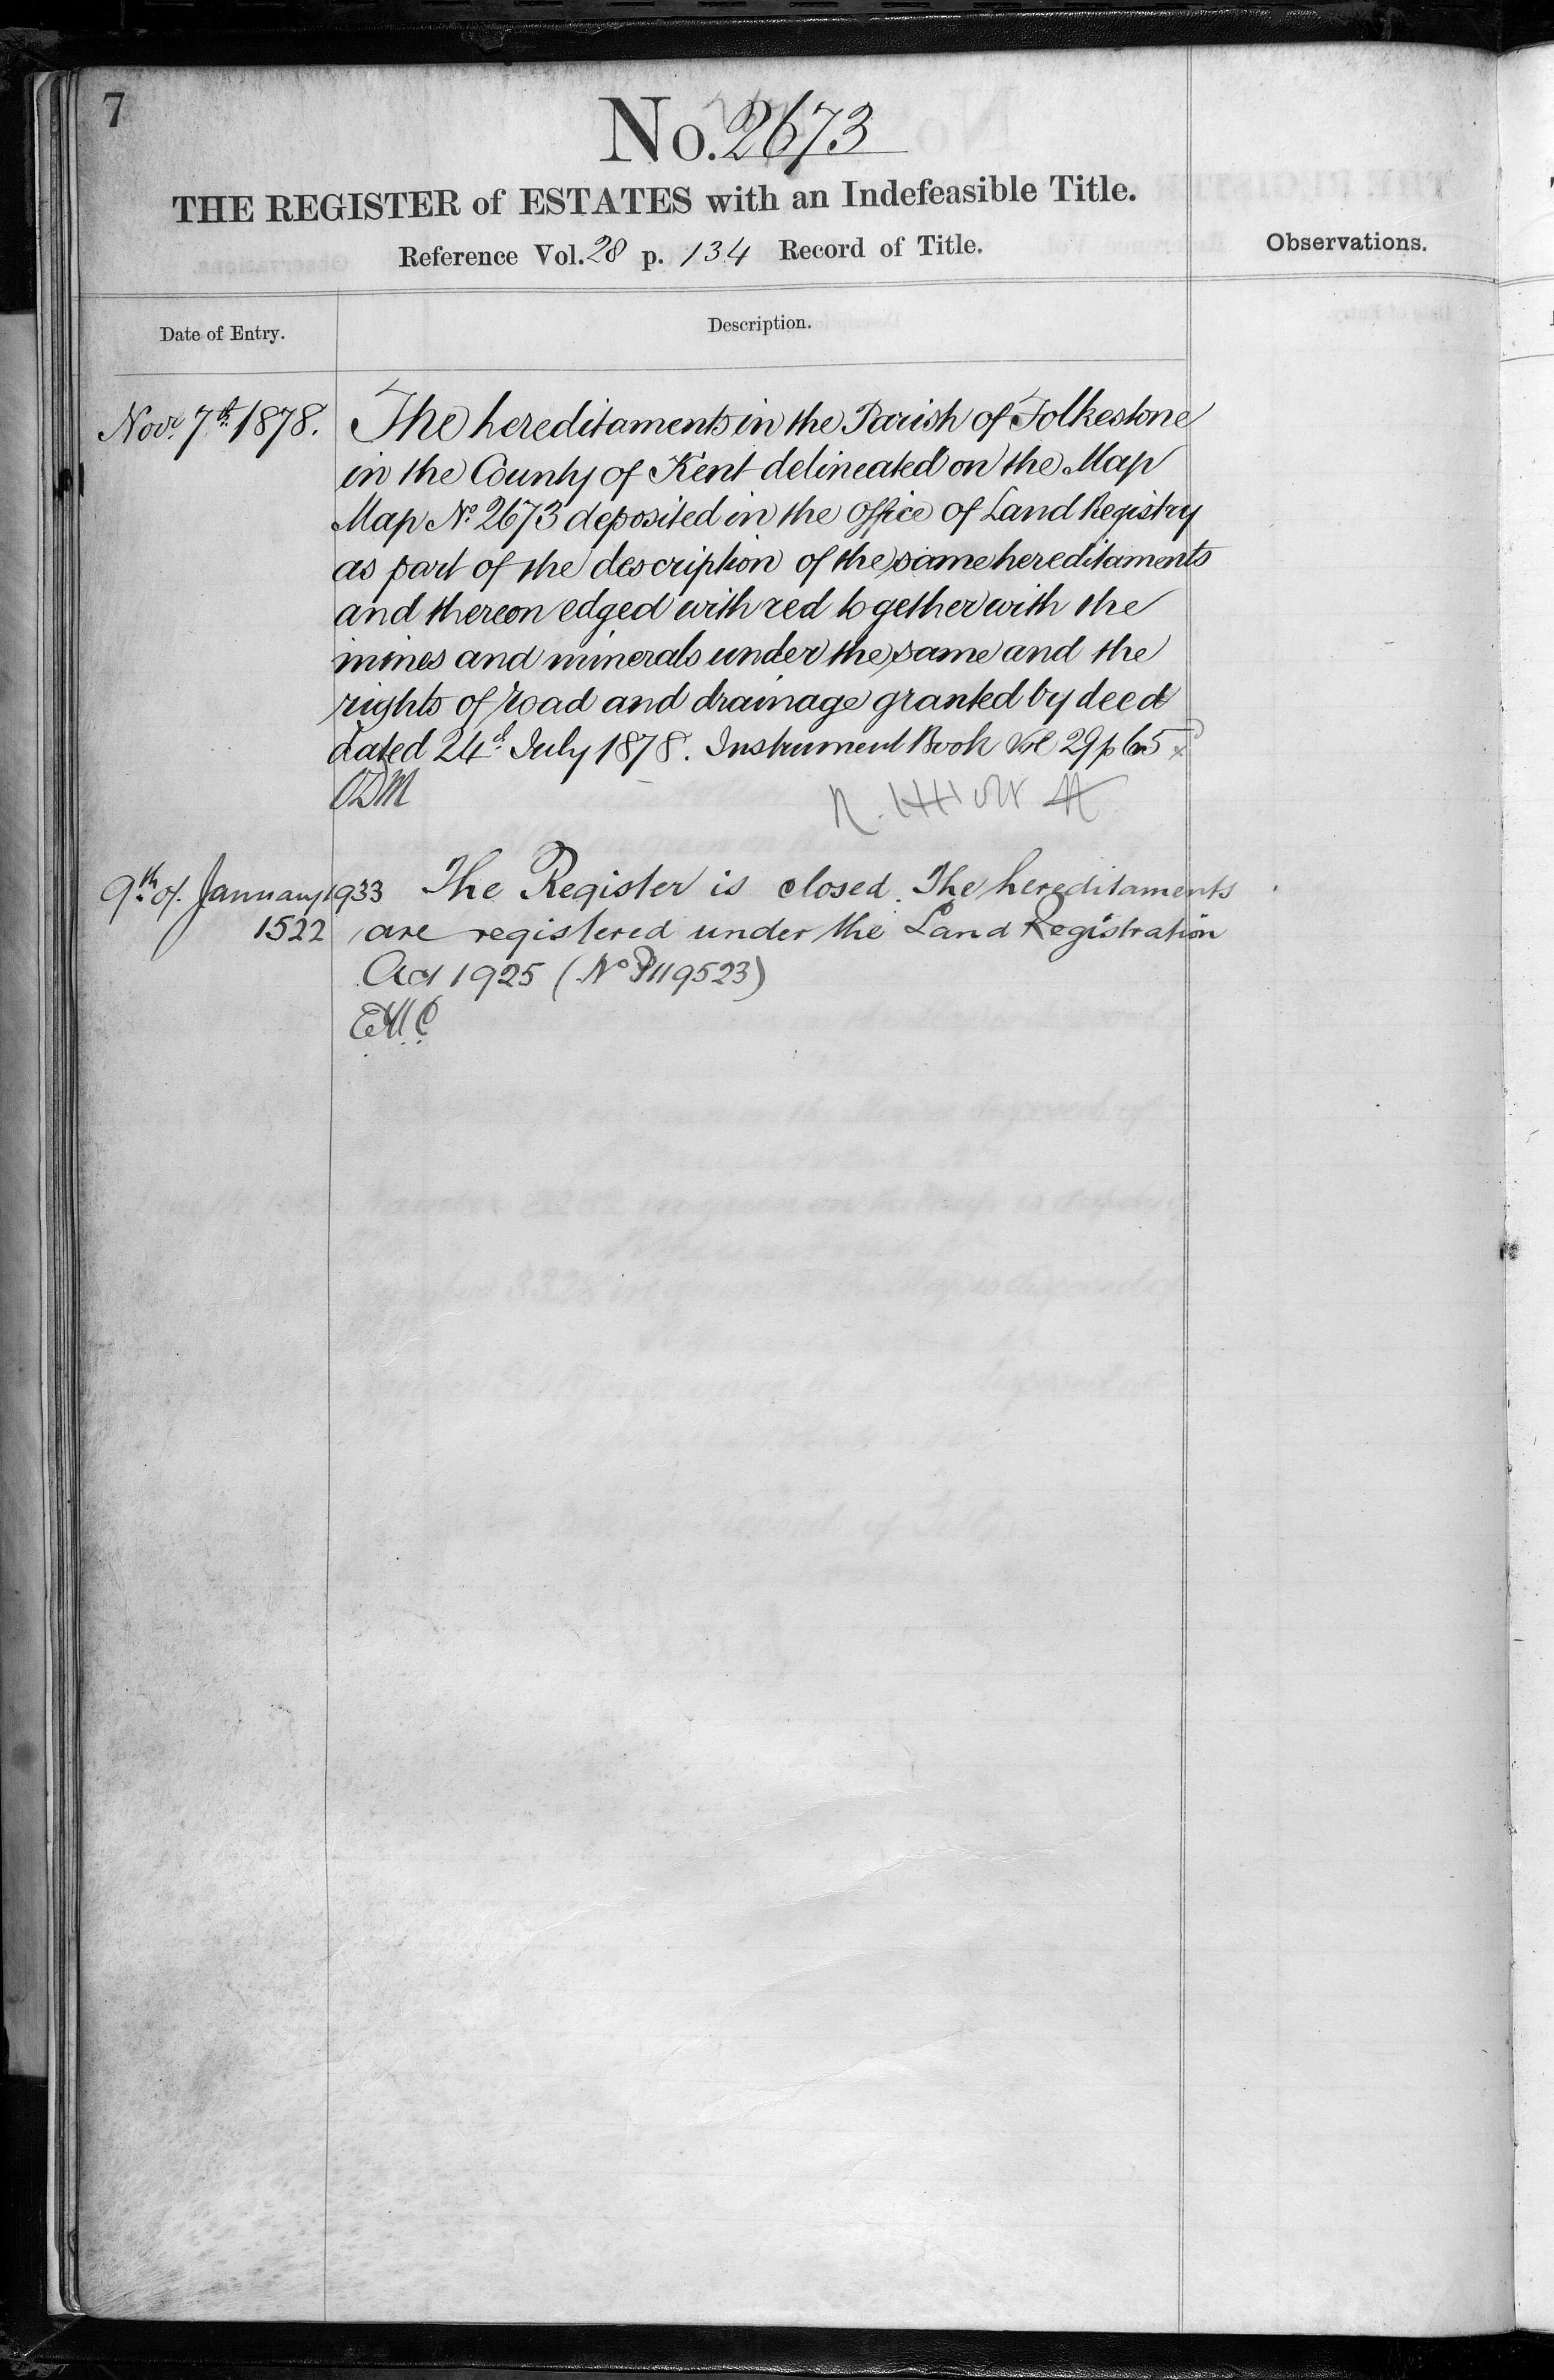 7
No. 2673
THE REGISTER of ESTATES with an Indefeasible Title.
Reference Vol. 28 p. 134 Record of Title.
Observations.
Date of Entry.
Description.
Novr. 7th. 1878.
The hereditaments in the Parish of Folkestone
in the County of Kent delineated on the Map
Map No. 2673 deposited in the Office of Land Registry
as part of the description of the same hereditaments
and thereon edged with red together with the
mines and minerals under the same and the
rights of road and drainage granted by deed
dated 24th July 1878. Instrument Book Vol 29 p 65
ODM
9th of January 1933
1522
The Register is closed. The hereditaments
are registered under the Land Registration
Act 1925 (No P119523)